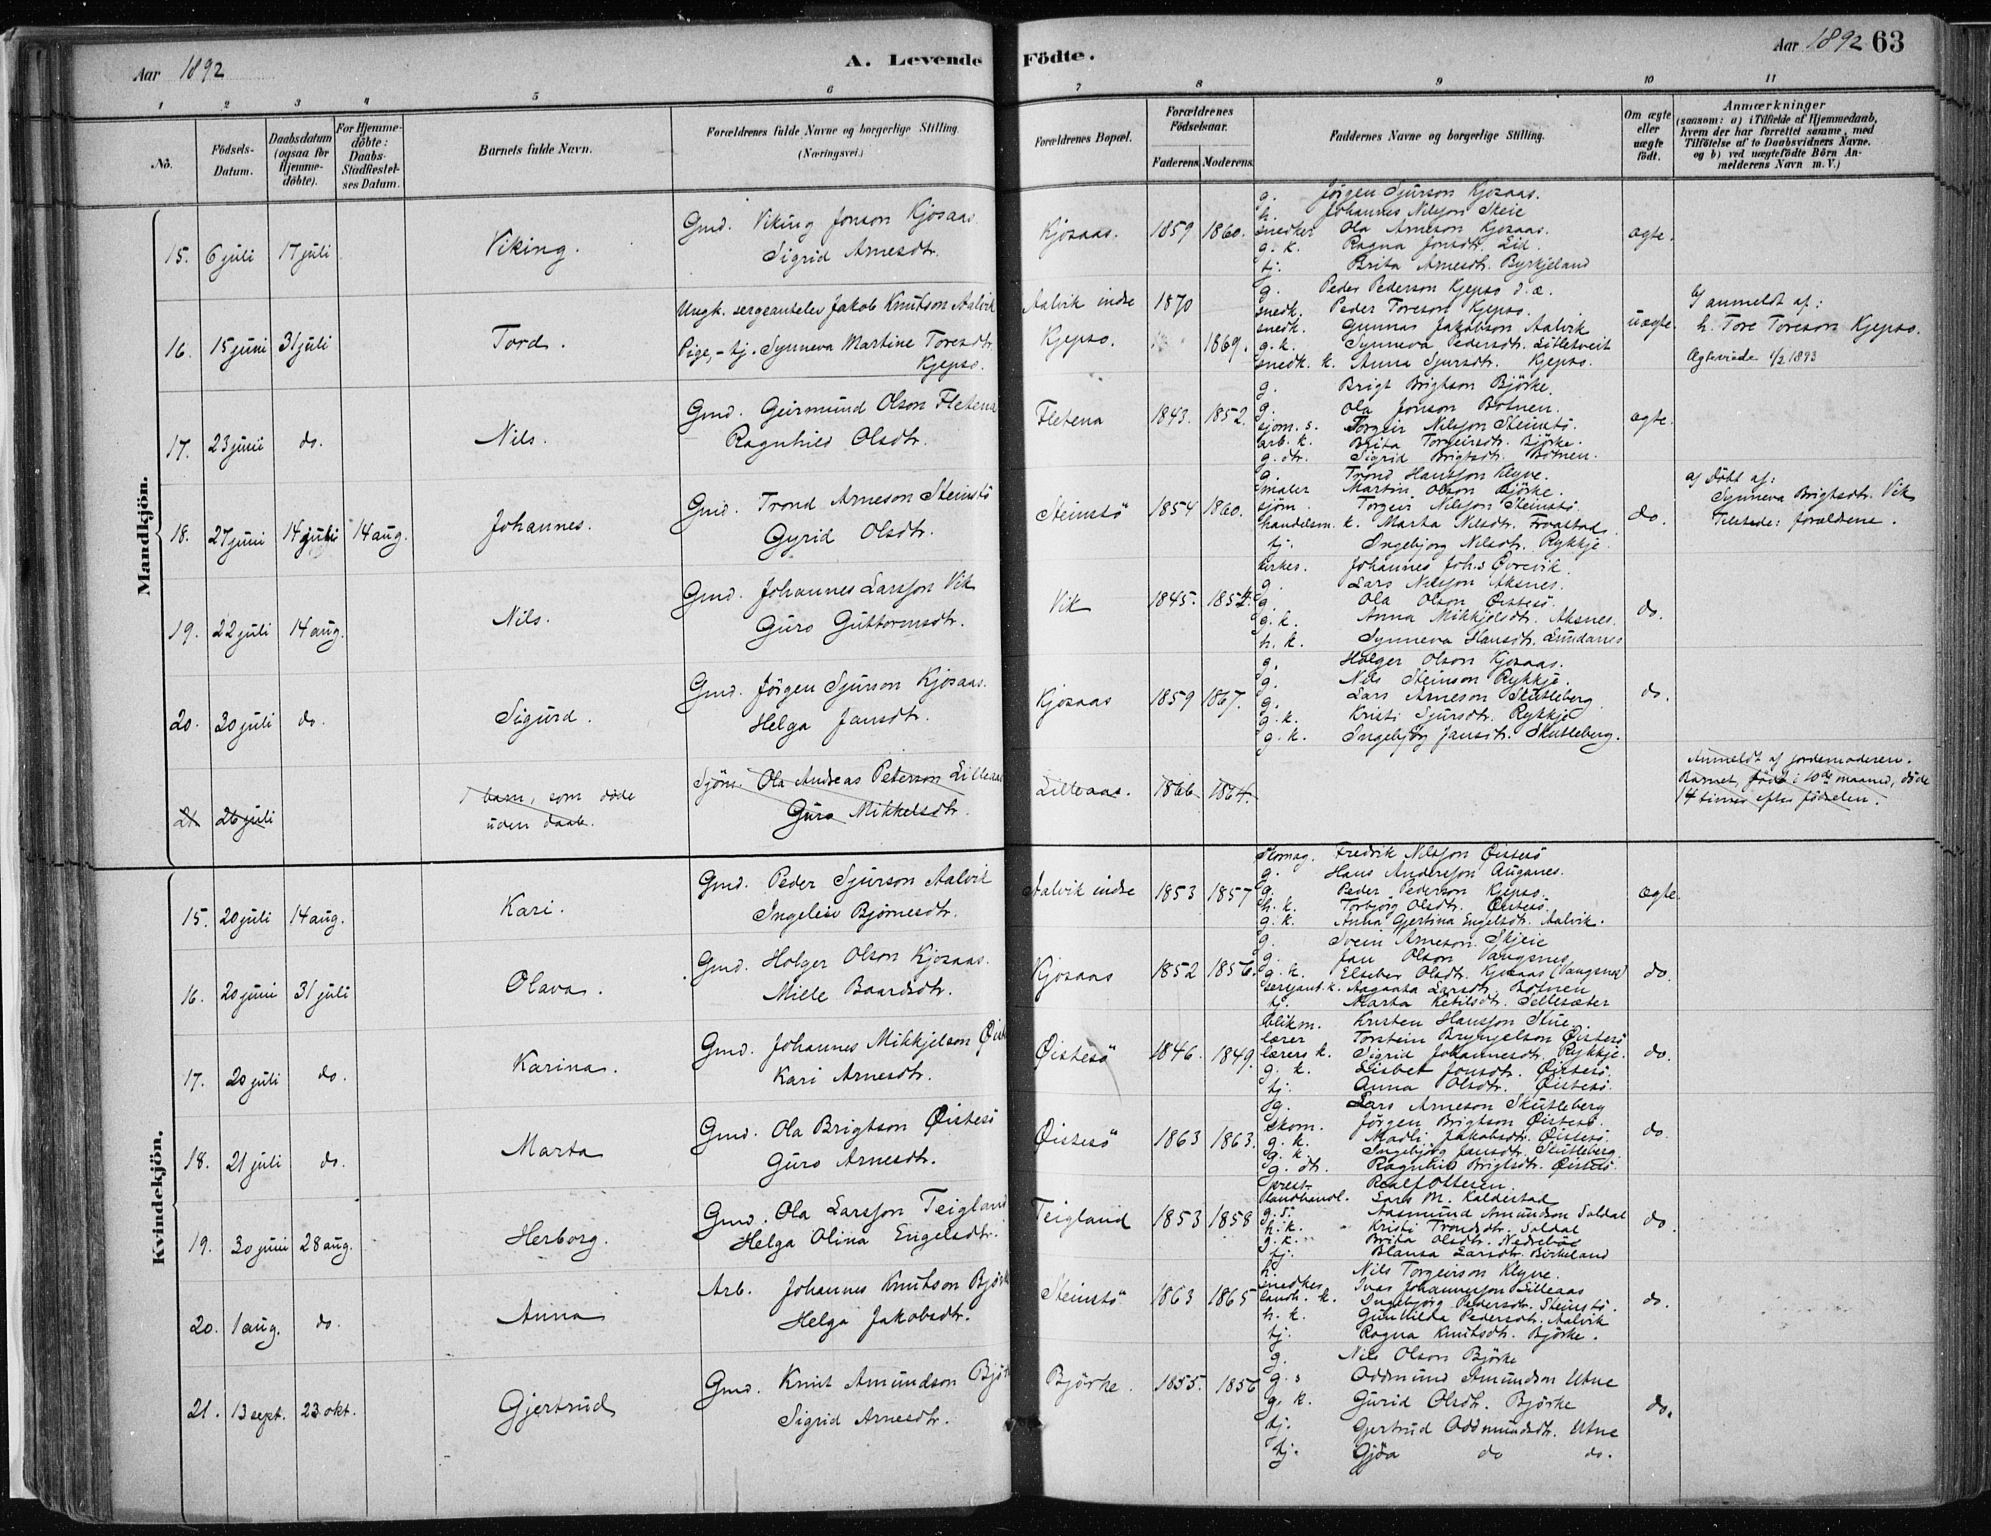 Aar 1892
A. Levende Födte.
Aar 1892 63
1 2 3 4 5 6 7 8 9 10 11
No.
Födsels-Datum.
Daabsdatum (ogsaa for Hjemme-döbte).
For Hjemme-döbte: Daabs-Stadfæstel-ses Datum.
Barnets fulde Navn.
Forældrenes fulde Navne og borgerlige Stilling (Næringsvei.)
Forældrenes Bopæl.
Forældrenes Födselsaar.
Faderens. Moderens.
Faddernes Navne og borgerlige Stilling.
Om ægte eller uægte födt.
Anmærkninger
(saasom: a) i Tilfælde af Hjemmedaab,
hvem der har forrettet samme, med
Tilföielse af to Daabsvidners Navne.
og b) ved uægtefödte Börn An-
melderens Navn m. V.)
Mandkjön.
15. 6 juli 17 juli Viking. Gmd. Viking Jonson Kjosaas. Sigrid Arnesdtr. Kjosaas. 1859 1860. ægte.
g. Jørgen Sjurson Kjosaas.
h. Johannes Nilsson Skeie
snedker Ola Arneson Kjosaas.
g. k. Ragna Jonsdtr. Lid.
tj. Brita Arnesdtr. Byrkjeland
16. 15 juni 31 juli Tord. Ungk. sergeantelev Jakob Knutson Aalvik
Pige, - tj. Synneva Martine Toresdtr. Kjepso.
Aalvik indre 1870
Kjepso. 1869. uægte.
g. Peder Pederson Kjepso d.æ.
snedk. Peder Toreson Kjepso.
snedk. Gunnar Jakobson Aalvik
g. k. Synneva Pedersdtr. Litletveit
snedk. k. Anna Sjursdtr. Kjepso.
b) anmeldt af:
h. Tore Toreson Kjepso.
Ægteviede 1/2 1893
17. 23 juni do. Nils. Gmd. Geirmund Olson Fletena Ragnhild Olsdtr. Fletena 1843. 1852. ægte.
g. Brigt Brigtson Björke.
g. Ola Jonson Botnen.
sjom. s. Torgeir Nilsson Steinstö.
arb. k. Brita Torgeirsdtr. Björke.
g. dtr. Sigrid Brigtsdtr. Botnen.
18. 27 juni 14 juli 14 aug. Johannes. Gmd. Trond Arneson Steinstö Gyrid Olsdtr. Steinstö 1854 1860. do.
g. Trond Hansson Klyve.
maler Martin Olson Björke.
sjöm. Torgeir Nilsson Steinstö.
handelsm. k. Marta Nilsdtr.
tj. Ingebjorg Nilsdtr. Rykkje.
a) Döbt af:
Synneva Brigtsdtr. Vik
Tilstede: forældrene.
19. 22 juli 14 aug. Nils. Gmd. Johannes Larsson Vik Guro Guttormsdtr. Vik 1845. 1854. do.
kirkes. Johannes Joh.s Övrevik
g. Lars Nilsson Aksnes.
g. Ola Olson Öistesö.
g. k. Anna Mikkjelsdtr. Aksnes.
h. k. Synneva Hansdtr. Lundanes
20. 30 juli do. Sigurd. Gmd. Jörgen Sjurson Kjosaas. Helga Jansdtr. Kjosaas 1859 1867. do.
g. Holger Olson Kjosaas.
g. Nils Steinson Rykkje.
g. Lars Arneson Skutleberg.
g. k. Kristi Sjursdtr. Rykkje
g. k. Ingebjorg Jansdtr. Skutleberg.
21 26 juli 1 barn, som döde uden daab. Sjöm. Ola Andreas Peterson Lilleaas Guro Mikkelsdtr. Lilleaas. 1866 1864.
Anmeldt af jordemoderen.
Barnet, födt i 10de maaned, döde
14 timer efter födselen.
Kvindekjön.
15. 20 juli 14 aug. Kari. Gmd. Peder Sjurson Aalvik Ingeleiv Bjørnesdtr. Aalvik indre 1853 1857 ægte.
Skomag. Fredrik Nilsson Öistesö
g. Hans Andersson Auganes.
g. Peder Pederson Kjepso.
h. k. Torbjörg Olsdtr. Öistesö.
g. k. Anna Gjertina Engelsdtr. Aalvik.
16. 20 juni 31 juli Olava. Gmd. Holger Olson Kjosaas. Mille Baardsdtr. Kjosaas 1852 1856. do.
g. Svein Arneson Skjeie
g. Jan Olson Vangsnes
g. k. Elsebet Olsdtr. Kjosaas (Vangsnes)
serjeant. k. Aagaata Larsdtr. Botnen
tj. Marta Ketilsdtr. Sellesæter
17. 20 juli do. Karina. Gmd. Johannes Mikkjelson Kari Arnesdtr. Öistesö 1846. 1849. do.
blikm. Kristen Hansson Stue
lærer Torstein Brynjelson Öistesö
lærers k. Sigrid Johannesdtr. Rykkje.
g. k. Lisbet Jonsdtr. Öistesö.
tj. Anna Olsdtr. Öistesö.
18. 21 juli do. Marta Gmd. Ola Brigtson Öistesö Guro Arnesdtr. Öistesö 1863 1863. do.
g. Lars Arneson Skutleberg
skom. Jörgen Brigtson Öistesö.
g. k. Madli Jakobsdtr. Öistesö.
g. k. Ingebjorg Jansdtr. Skutleberg.
g. dtr. Ragnhild Brigtsdtr. Öistesö
19. 30 juni 28 aug. Herborg. Gmd. Ola Larsson Teigland Helga Olina Engelsdtr. Teigland 1853 1858 do.
prest Rolf Olteren
landhandl. Lars M. Kaldestad
g. s. Aasmund Amundson Soldal
h. k. Kristi Trondsdtr. Soldal
g. k. Brita Olsdtr. Nedrebøe
tj. Blansa Larsdtr. Birkeland
20. 1 aug. do. Anna Arb. Johannes Knutson Helga Jakobsdtr. Steinstö 1863 1865 do.
h. Nils Torgeirson Klyve.
snedker Ivar Johannesson Lilleaas
landh. k. Ingebjörg Pedersdtr. Steinstö.
h. k. Gunhilda Pedersdtr. Aalvik
tj. Ragna Knutsdtr. Björke.
21. 13 sept. 23 okt. Gjertrud Gmd. Knut Amundson Sigrid Arnesdtr. Björke. 1855. 1856 do.
g. Nils Olson Björke
g. s Oddmund Amundson Utne
g. k. Gurid Olsdtr. Björke
tj. Gjertrud Oddmundsdtr. Utne
tj. Gjöa do do.